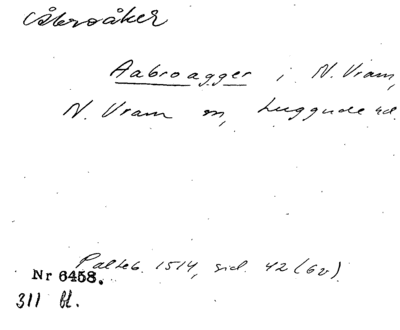 Åbroåker
Aabroagger i N. Vram,
N. Vram sn, Luggude hd.
Palteb. 1514, sid. 42 (6v)
Nr 6458.
311 bl.